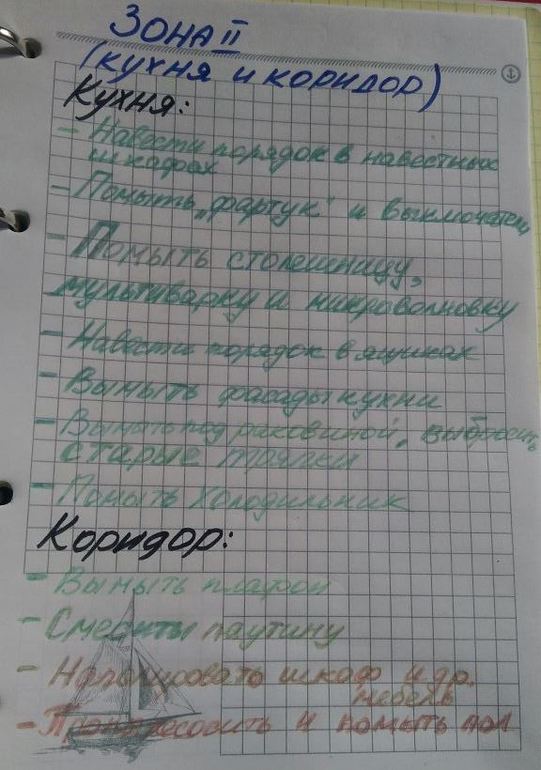 Зона II
(кухня и коридор)
Кухня:
- Навести порядок в навестных
шкафах
- Помыть „фартук" и выключатели
- Помыть столешницу,
мультиварку и микроволновку
- Навести порядок в ящиках
- Вымыть фасады кухни
- Вымыть под раковиной, выбросить
старые тряпки
- Помыть холодильник
Коридор:
- Вымыть плафон
- Смести паутину
- Наполировать шкаф и др.
мебель
- Пропылесосить и помыть пол